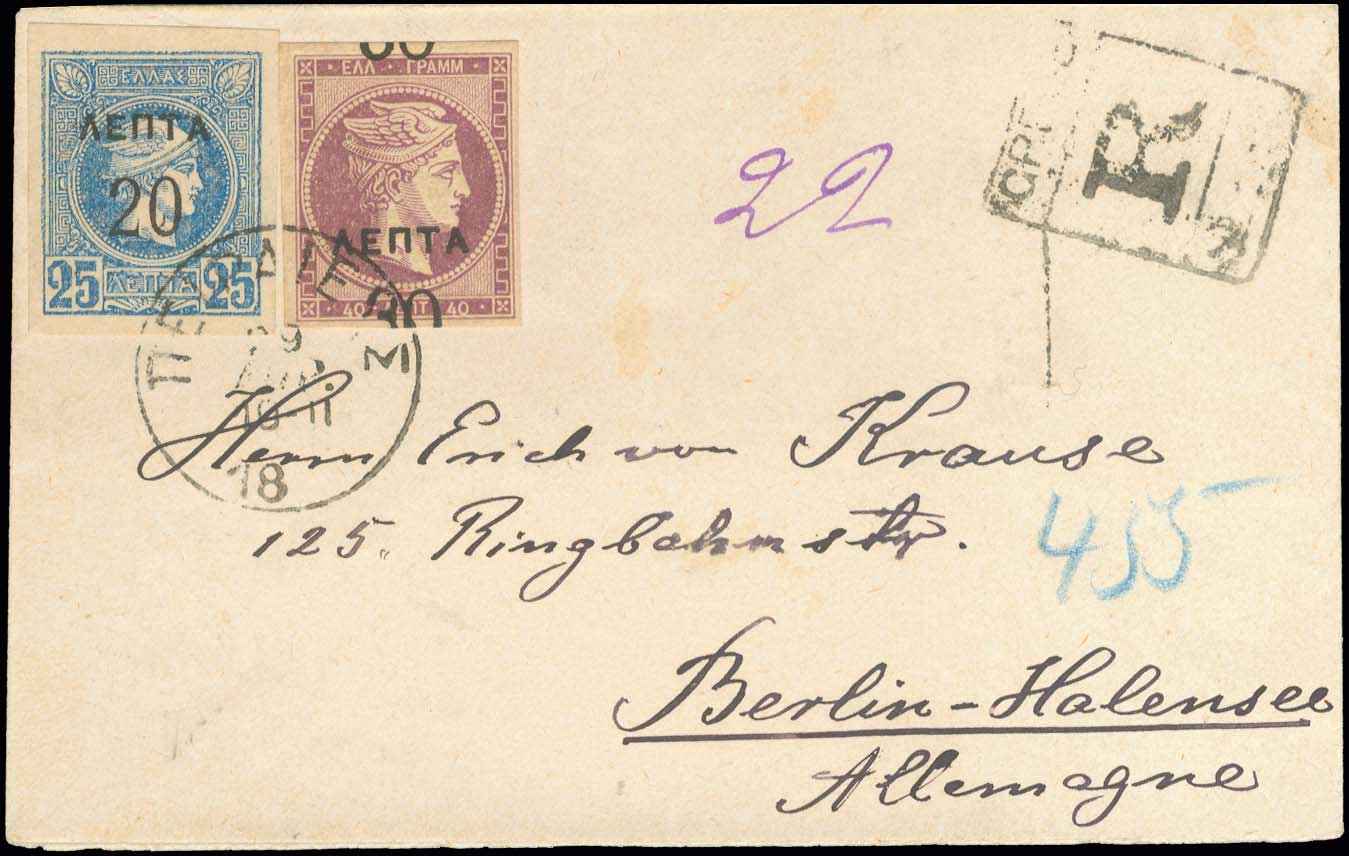 ΕΛΛΑΣ
ΛΕΠΤΑ
20
25 ΛΕΠΤΑ 25
ΕΛΛ · ΓΡΑΜΜ
ΛΕΠΤΑ
40 ΛΕΠΤ 40
22
R
18
Herrn Erich von Krause
125. Ringbahnstr.
455
Berlin-Halensee
Allemagne